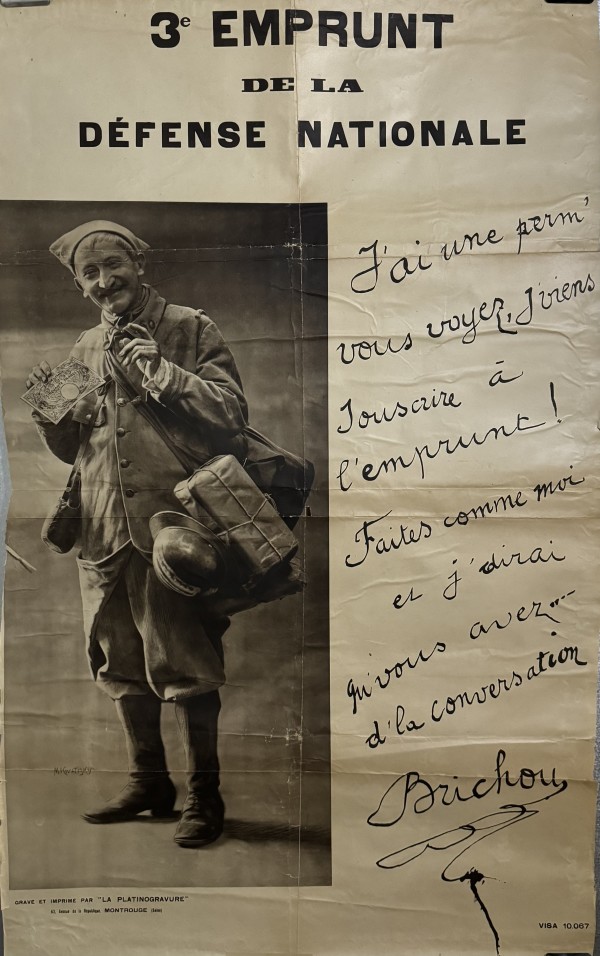 3e EMPRUNT
DE LA
DÉFENSE NATIONALE
J'ai une perm'
vous voyez, j'viens
souscrire à
l'emprunt!
Faites comme moi
et j'dirai
qu'vous avez...
d'la conversation
Brichou
GRAVÉ ET IMPRIMÉ PAR "LA PLATINOGRAVURE"
Avenue de la République, MONTROUGE (Seine)
VISA 10.067